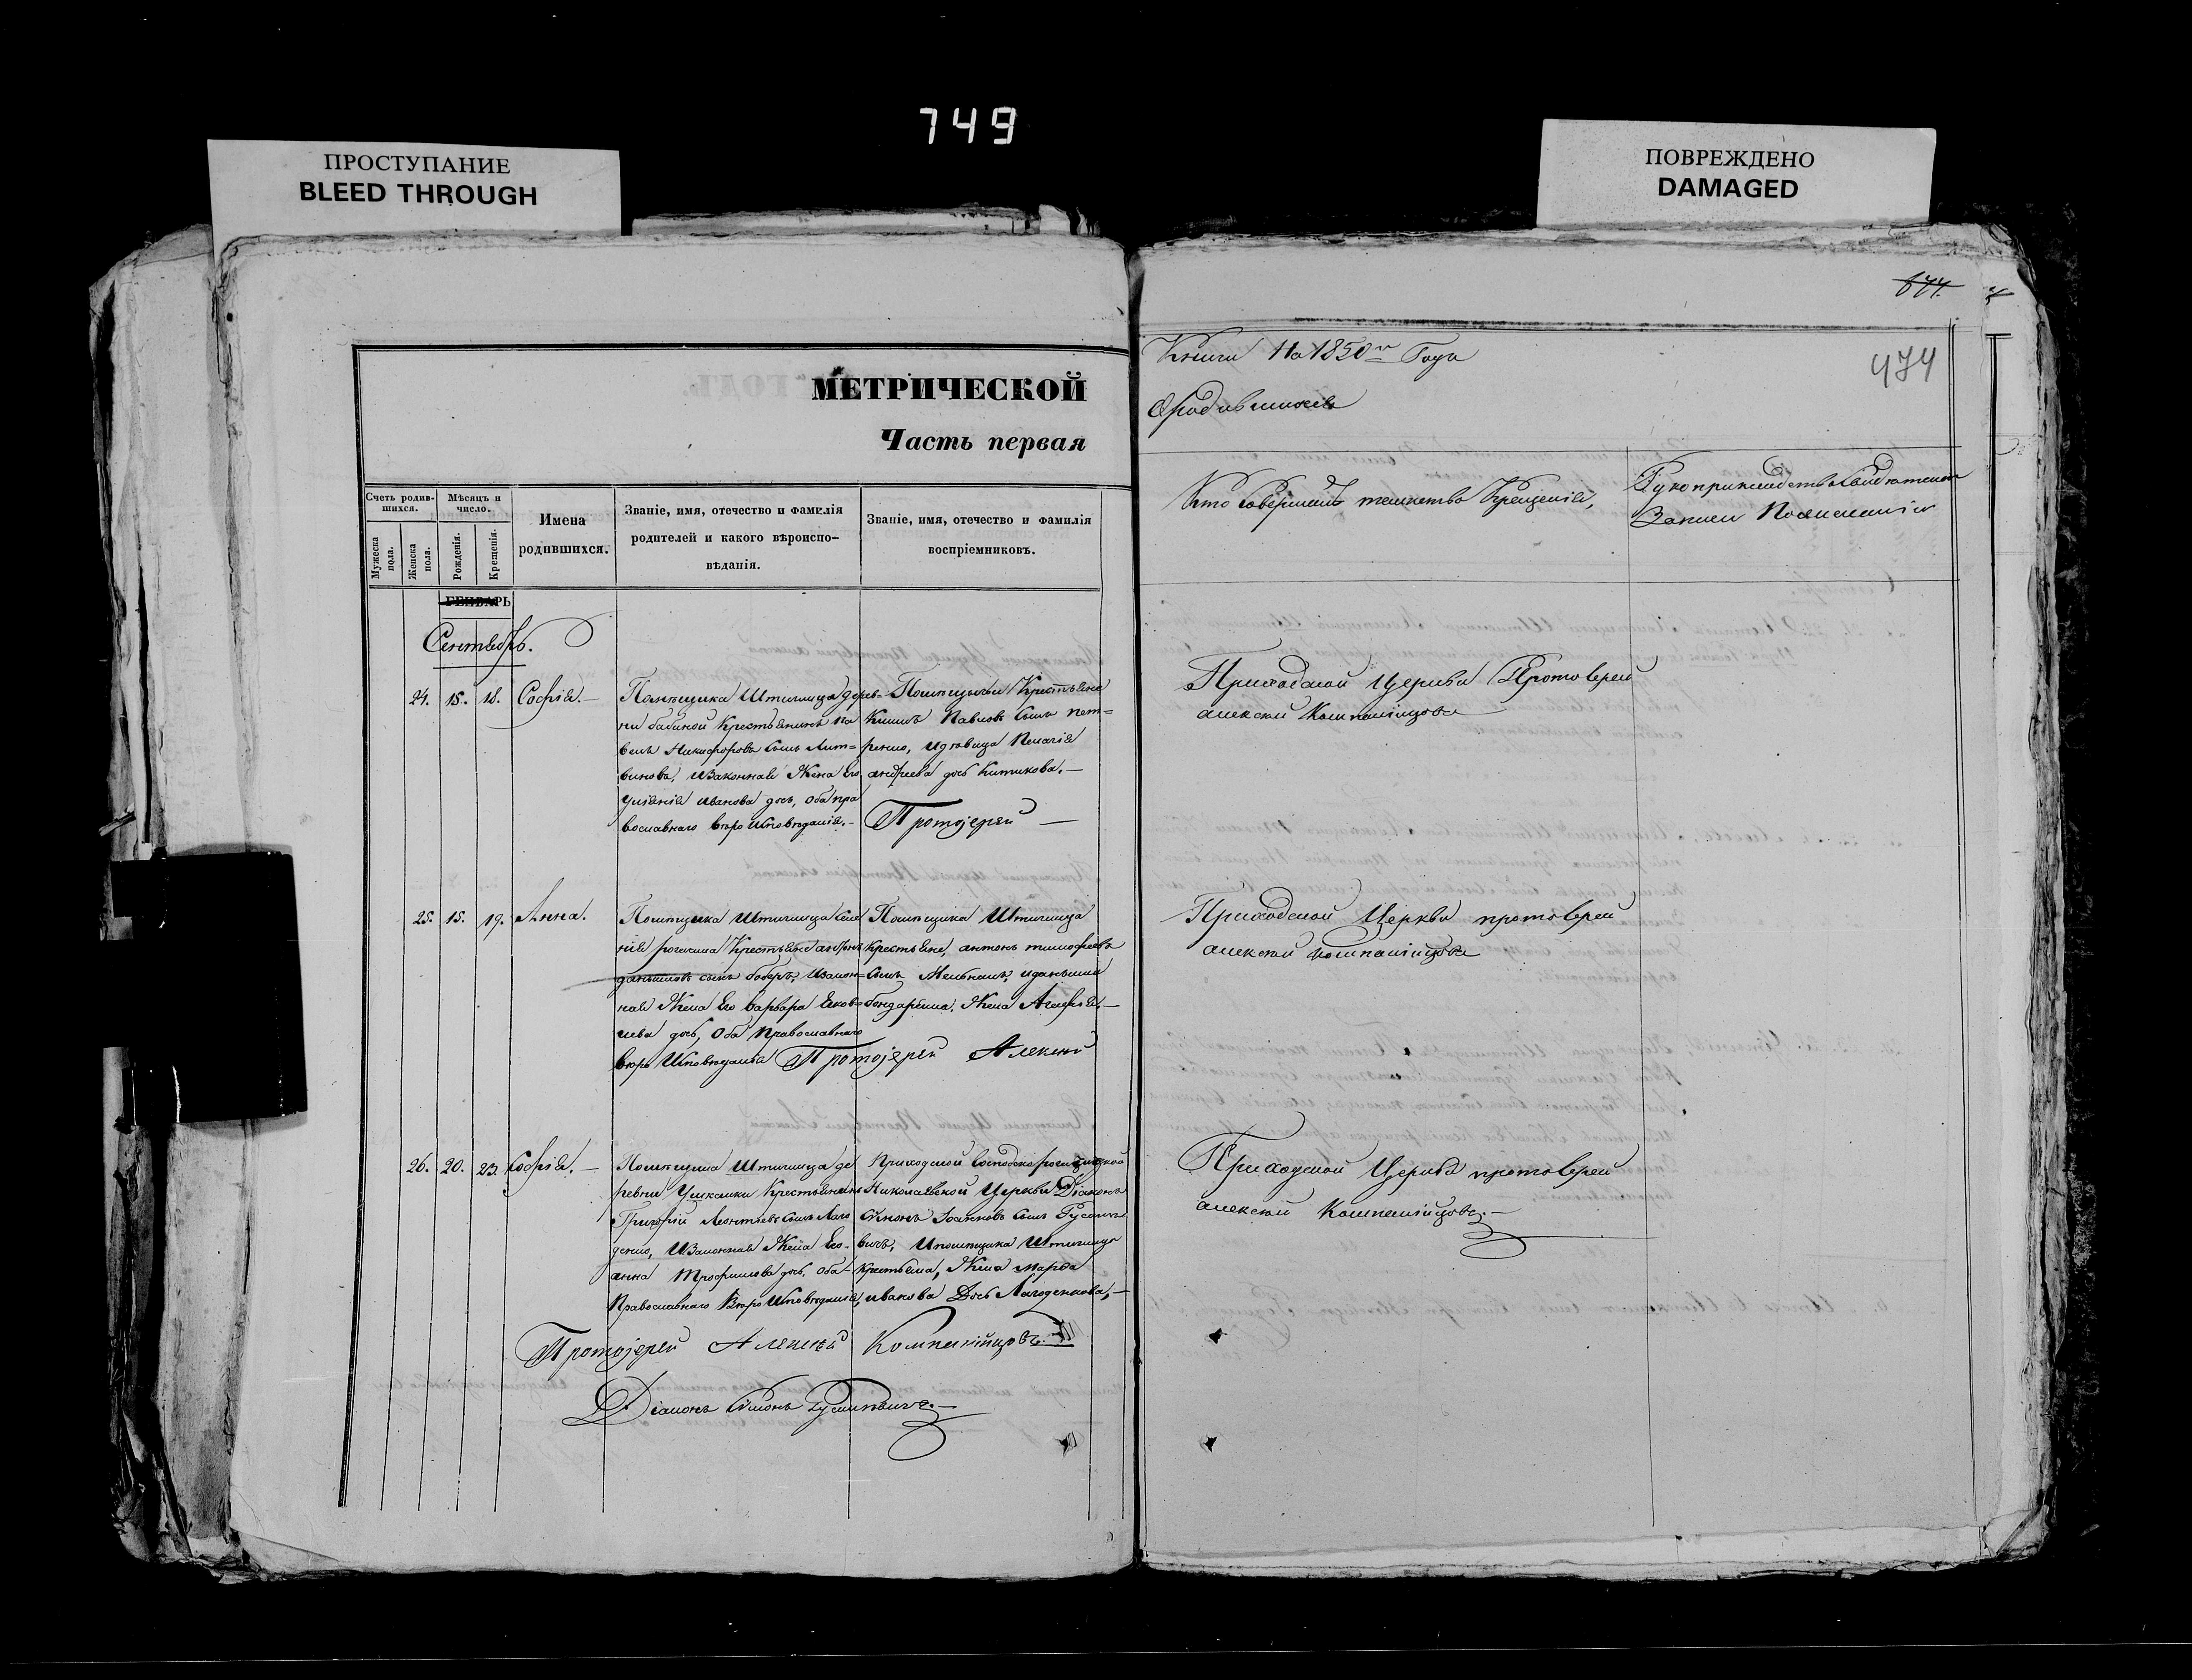 749
ПРОСТУПАНИЕ
BLEED THROUGH
ПОВРЕЖДЕНО
DAMAGED
674.
474
МЕТРИЧЕСКОЙ
Часть первая
Книги На 1850й Года
О родившихся
Счетъ родив-
шихся.
Мужеска пола.
Женска пола.
Мѣсяцъ и
число.
Рожденія.
Крещенія.
Имена
родившихся.
Званіе, имя, отечество и фамилія
родителей и какого вѣроиспо-
вѣданія.
Званіе, имя, отечество и фамилія
воспріемниковъ.
Кто совершалъ таинство Крещенія,
Рукоприкладство свидѣтелей
Записи По желанію
ГЕНВАРЬ
Сентябрь.
24. 15. 18. Софія.—
Помѣщика Штиглица дерев-
ни бабиной Крестьянинъ Па
велъ Никифоровъ сынъ Лит=
виновъ, Изаконная Жена Его
Іуліанія Иванова дочь, Оба пра
вославнаго вѣро Исповѣданія.-
Помѣщичьи Крестьяне
Павловъ сынъ Пет=
ренко, Идѣвица Пелагія
андреева дочь Китикова.—
Протоіерей —
Приходской Церкви Протоіерей
алексій Компаніицовъ
25. 15. 19. Анна.
Помѣщика Штиглица селе
нія рогачика Крестьянинъ
сынъ боберъ, Изакон=
ная Жена Его Варвара Яков=
лева дочь, Оба Православнаго
вѣро Исповѣданія
Помѣщика Штиглица
Крестьяне, антонъ тимофеевъ
Сынъ Мельникъ,
бондаренка, Жена
Протоіерей Алексій
Приходской Церкви протоіерей
алексій Компаніицовъ
26. 20. 23. Софія.—
Помѣщика Штиглица де
ревни Ушкалки Крестьянинъ
Григорій Леонтіевъ Сынъ Лаго
денко, Изаконная Жена Его-
анна Трофимова дочь, Оба-
Православнаго Вѣро Исповѣданія,
Приходской
Николаевской Церкви Діаконъ
Симонъ Іоанновъ Сынъ Русине
вичъ, Ипомѣщика Штиглица
Крестьяна, Жена марфа
иванова Дочь Лагоденкова,—
Протоіерей Алексій Компаніицовъ
Діаконъ Симонъ Русиневичъ.—
Приходской Церкви протоіерей
алексій Компаніицовъ.—